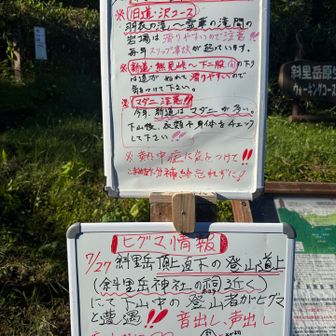 ※旧道・沢コース
羽衣の滝〜霊華の滝間の
岩場は滑りやすいので注意!!
毎年スリップ事故が起っています。
※新道・熊見峠〜下二股間の下り
は道がぬれて滑りやすいので
気をつけて下さい。
※マダニ注意!!
今年、新道はマダニが多い。
下山後、衣類や身体をチェック
して下さい!!
※熱中症に気をつけて!!
水分補給忘れずに!
斜里岳原生
ウォーキングコース
ヒグマ情報
7/27 斜里岳頂上直下の登山道上
(斜里岳神社の祠近く)
にて下山中の登山者がヒグマ
と遭遇!! 音出し、声出し